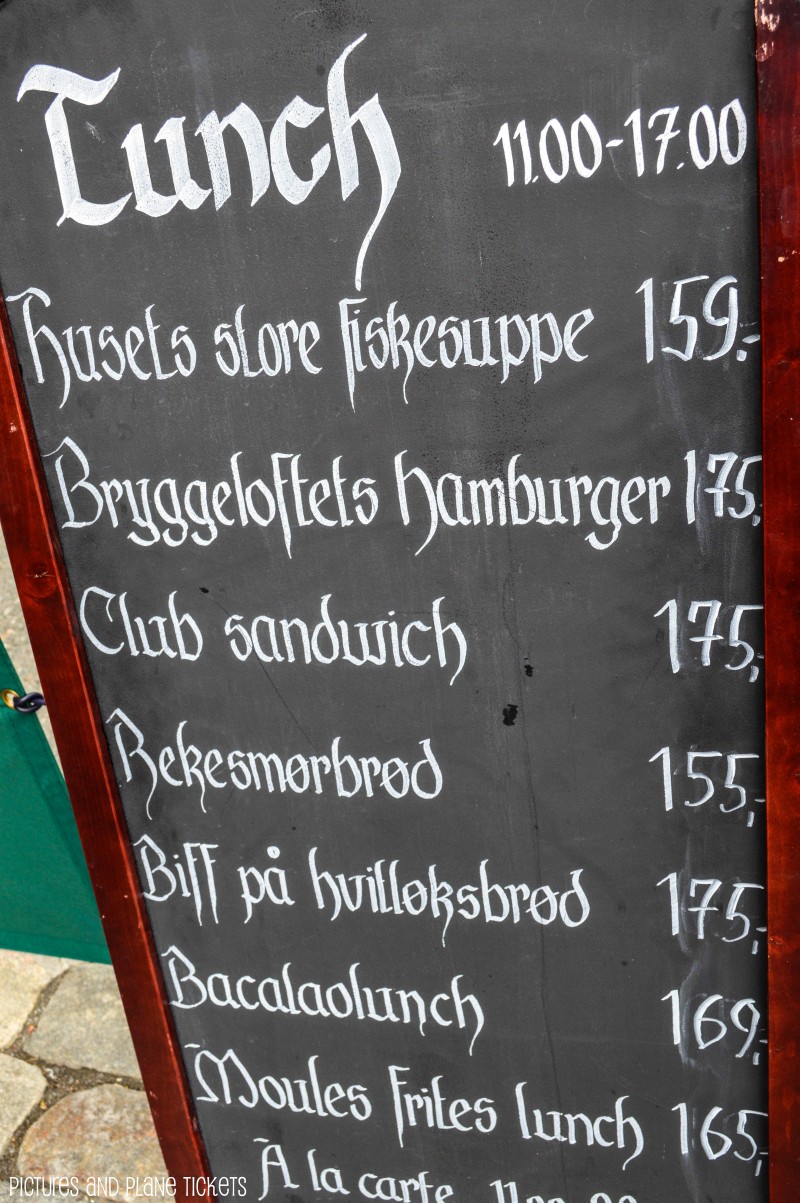 Lunch 11.00-17.00
Husets store fiskesuppe 159.-
Bryggeloftets hamburger 175.
Club sandwich 175,-
Rekesmørbrød 155,-
Biff på hvitløksbrød 175,-
Bacalaolunch 169,-
Moules frites lunch 165,-
A la carte
PICTURES AND PLANE TICKETS